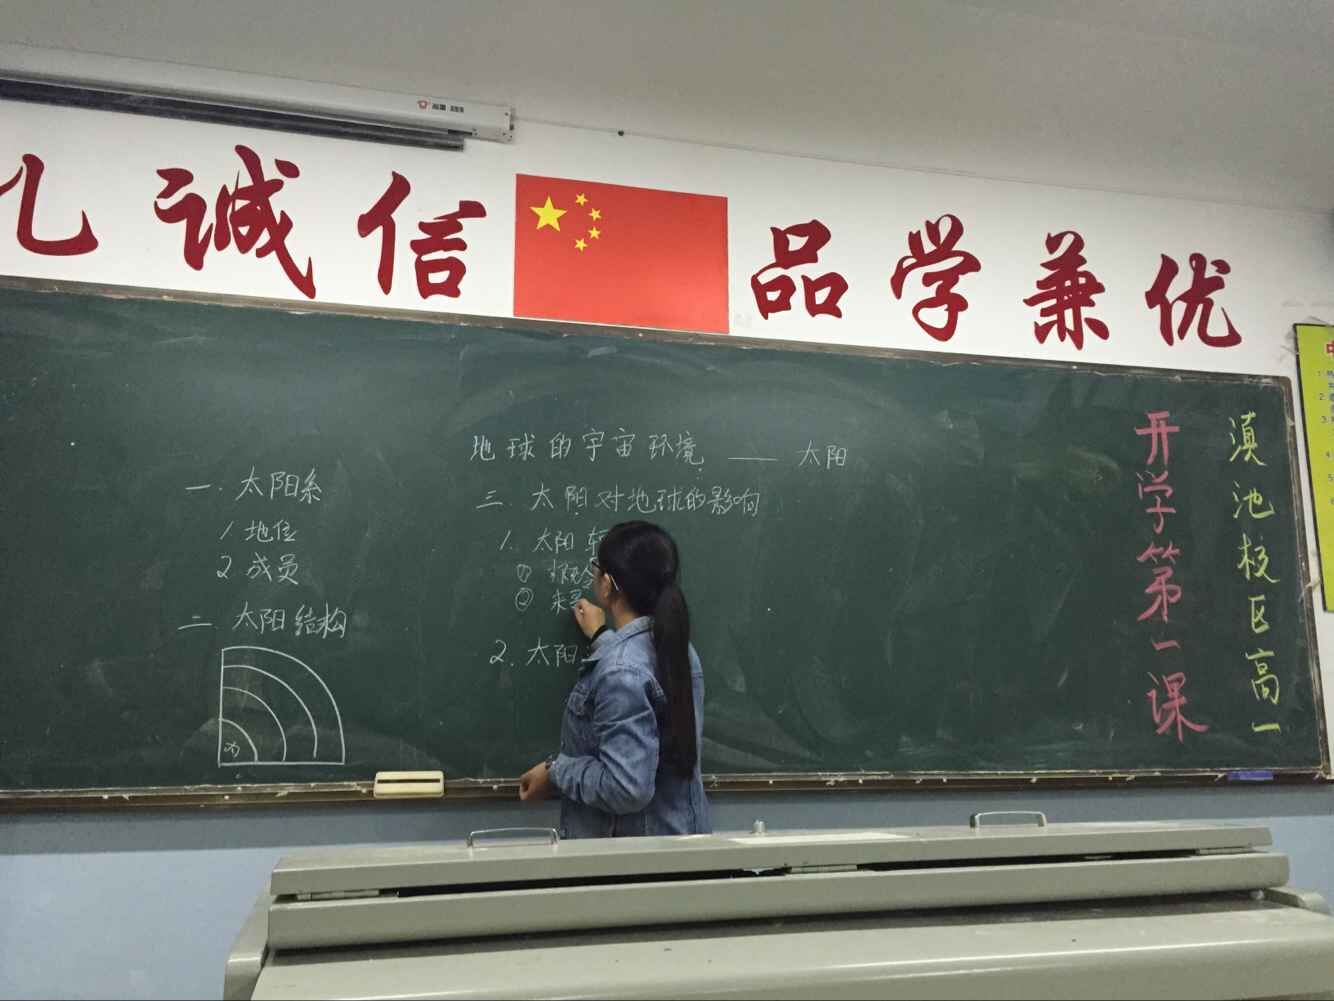 诚信 品学兼优
地球的宇宙环境 —— 太阳
一. 太阳系
1. 地位
2. 成员
二 太阳结构
三. 太阳对地球的影响
1. 太阳
① 概念
②
2. 太阳
开学第一课
滇池校区高一